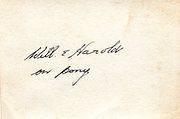 Will & Harold
on pony